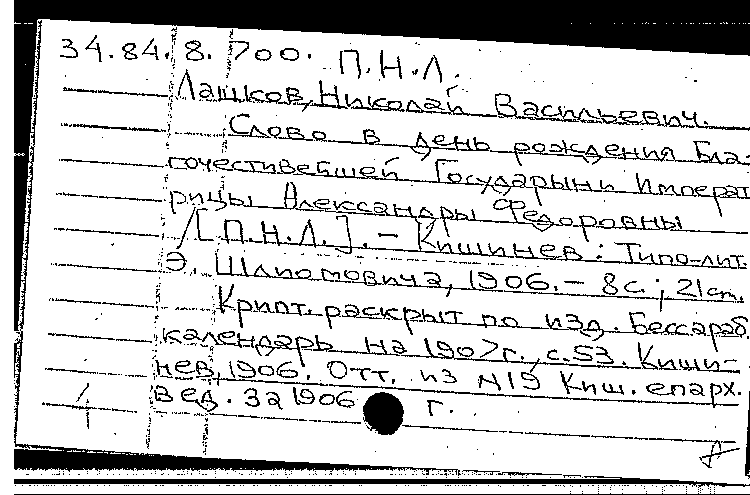 34.84.8.700. П.Н.Л.
Лашков, Николай Васильевич.
Слово в день рождения Бла-
гочестивейшей Государыни Императ
рицы Александры Федоровны
/[П.Н.Л.]. - Кишинев: Типо-лит.
Э. Шлиомовича, 1906. - 8с.; 21см.
Крипт. раскрыт по изд. Бессараб.
календарь на 1907г., с.53. Киши-
нев, 1906. Отт. из №19 Киш. епарх.
Вед. за 1906 г.
1